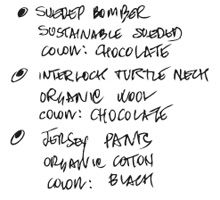 SUEDED BOMBER
SUSTAINABLE SUEDED
COLOUR: CHOCOLATE
INTERLOCK TURTLE NECK
ORGANIC WOOL
COLOUR: CHOCOLATE
JERSEY PANTS
ORGANIC COTTON
COLOUR: BLACK